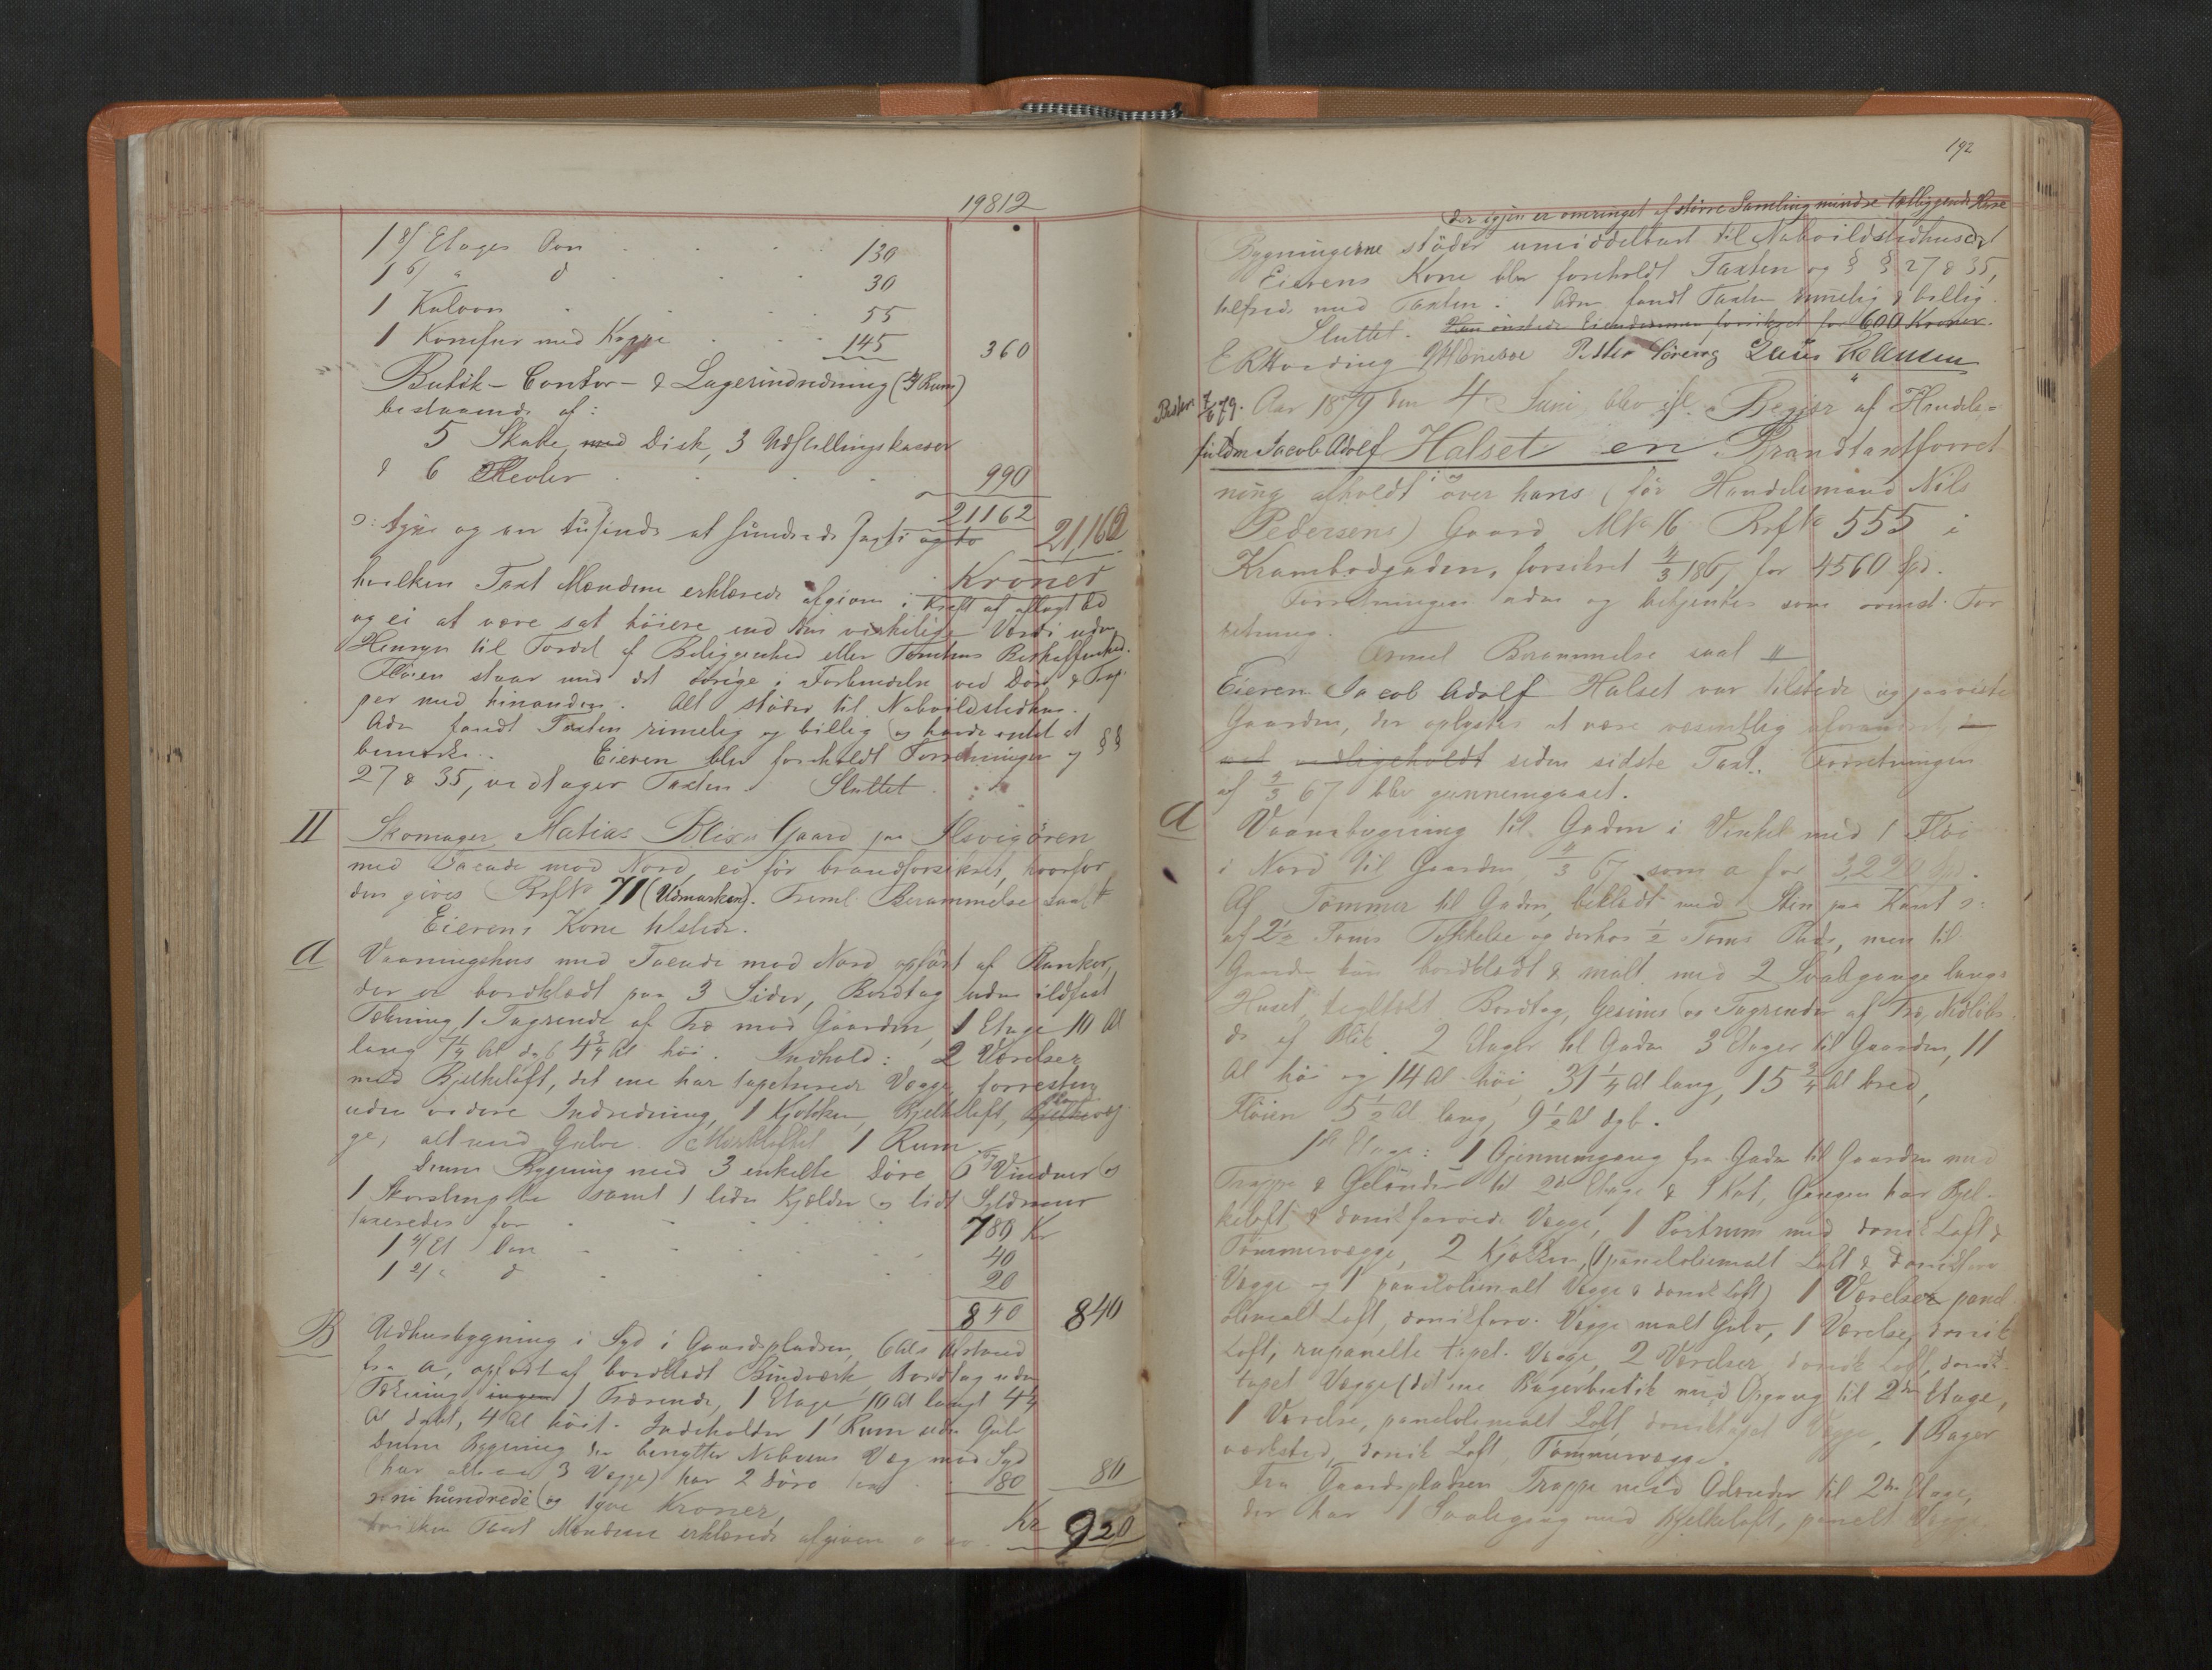 19812
1 8/ Etages Ovn 130
1 6/ " d 30
1 Kulovn 55
1 Komfur med Kappe 145 360
Butik- Contor- & Lagerindredning (4 Rum)
bestaaende af:
5 Skabe, med Disk, 3 Udstillingskasser
& 6 Reoler 990
21162
ɔ: tyve og en tusinde et hundrede sexti og to 21,162
Kroner
hvilken Taxt Mændene erklærede afgiven i Kraft af aflagt Ed
og ei at være sat høiere end den virkelige Værdi uden
Hensyn til Fordel af Beliggenhed eller Tomtens Beskaffenhed.
Fløien staar med det øvrige i Forbindelse ved Døre & Trap
per med hinanden. Alt støder til Naboildstedhus.
Adm fandt Taxten rimelig og billig og havde intet at
bemærke. Eieren blev foreholdt Forretningen og §§
27 & 35, vedtager Taxten. Sluttet.
II Skomager Matias Blixs Gaard paa Ilsvigøren
med Facade mod Nord, ei før brandforsikret, hvorfor
den gives Brf No 71 (Udmarken). Freml. Berammelse saal.
Eierens Kone tilstede.
A Vaaningshus med Facade mod Nord opført af Planker,
der er bordklædt paa 3 Sider, Bordtag uden ildfast
Tækning, 1 Tagrende af Træ mod Gaarden, 1 Etage 10 Al
lang 7 1/4 Al dyb 4 3/4 Al høi. Indhold: 2 Værelser
med Bjelkeloft, det ene har tapetserede Vægge, forresten
uden videre Indredning, 1 Kjøkken, Bjelkeloft, Bjelkevæg
Planke
ge, alt med Gulve. Mørkloftet 1 Rum
Denne Bygning med 3 enkelte Døre 6 Vinduer og
1 Skorstenspibe samt 1 liden Kjælder og lidt Syldmuur
taxeredes for 780 Kr
1 4/ Et Ovn 40
1 2/ " d 20
840 840
B Udhusbygning i Syd i Gaardspladsen, 6 Als Afstand
fra A, opført af bordklædt Bindværk Bordtag uden
Tækning ingen 1 Trærende, 1 Etage 10 Al langt 4 1/4
Al dybt, 4 Al høit. Indeholder 1 Rum uden Gulv
Denne Bygning der benytter Naboens Væg mod Syd
(har altsaa 3 Vægge) har 2 Døre 80 80
ɔ: ni hundrede og tyve Kroner, Kr 920
hvilken Taxt Mændene erklærede afgiven o sv.
192
der igjen er omringet af større Samling mindre tætliggende Huse
Bygningerne støder umiddelbart til Naboildstedhuset
Eierens Kone blev foreholdt Taxten og §§ 27 & 35,
tilfreds med Taxten. Adm. fandt Taxten rimelig & billig.
Sluttet. Han ønskede Eiendommen forsikret for 600 Kroner.
Beskr. 7/6 79. Aar 1879 den 4. Juni blev ifl. Begjær af Handels-
fuldm Jacob Adolf Halset en Brandtaxtforret
ning afholdt over hans (før Handelsmand Nils
Pedersens) Gaard Mk No 16 Brf No 555 i
Krambodgaden, forsikret 4/3 1867 for 4560 Spd.
Forretningen adm og betjentes som ovenst. For
retning.
Freml Berammelse saal
Eieren Jacob Adolf Halset var tilstede og paaviste
Gaarden, der oplystes at være væsentlig uforandret,
vel vedligeholdt siden sidste Taxt. Forretningen
af 4/3 67 blev gjennemgaaet.
A Vaanebygning til Gaden i Vinkel med 1 Fløi
i Nord til Gaarden 4/3 67 som a for 3,220 Spd.
Af Tømmer til Gaden, beklædt med Sten paa Kant ɔ:
af 2 1/2 Toms Tykkelse og derhos 1/2 Toms Puds, men til
Gaarden kun bordklædt & malt med 2 Svalgange langs
Huset, teglhæd Bordtag, Gesims og Tagrender af Træ, Nedløbs
dr af Blik. 2 Etager til Gaden 3 Etager til Gaarden, 11
Al høi og 14 Al høi, 31 1/4 Al lang, 15 3/4 Al bred,
Fløien 5 1/2 Al lang, 9 1/2 Al dyb.
1ste Etage: 1 Gjennemgang fra Gaden til Gaarden med
Trappe & Gelænder til 2d Etage & 1 Kot, Gangen har Bjel-
keloft & donikfarvede Vægge, 1 Portrum med donik Loft &
Tømmervægge, 2 Kjøkken, (1 paneloliemalt Loft & donikfarv
Vægge og 1 paneloliemalt Vægge & donik Loft) 1 Værelse panel
oliemalt Loft, donikfarv. Vægge malt Gulv, 1 Værelse, donik
Loft, rupanelte tapet. Vægge, 2 Værelser donik Loft, donik
tapet Vægge (det ene Bagerbutik med Opgang til 2den Etage,
1 Værelse, paneloliemalt Loft, doniktapet Vægge, 1 Bager
værksted, donik Loft, Tømmervægge.
Fra Gaardspladsen Trappe med Gelender til 2den Etage,
der har 1 Svalegang med Bjelkeloft, panelt Vægge